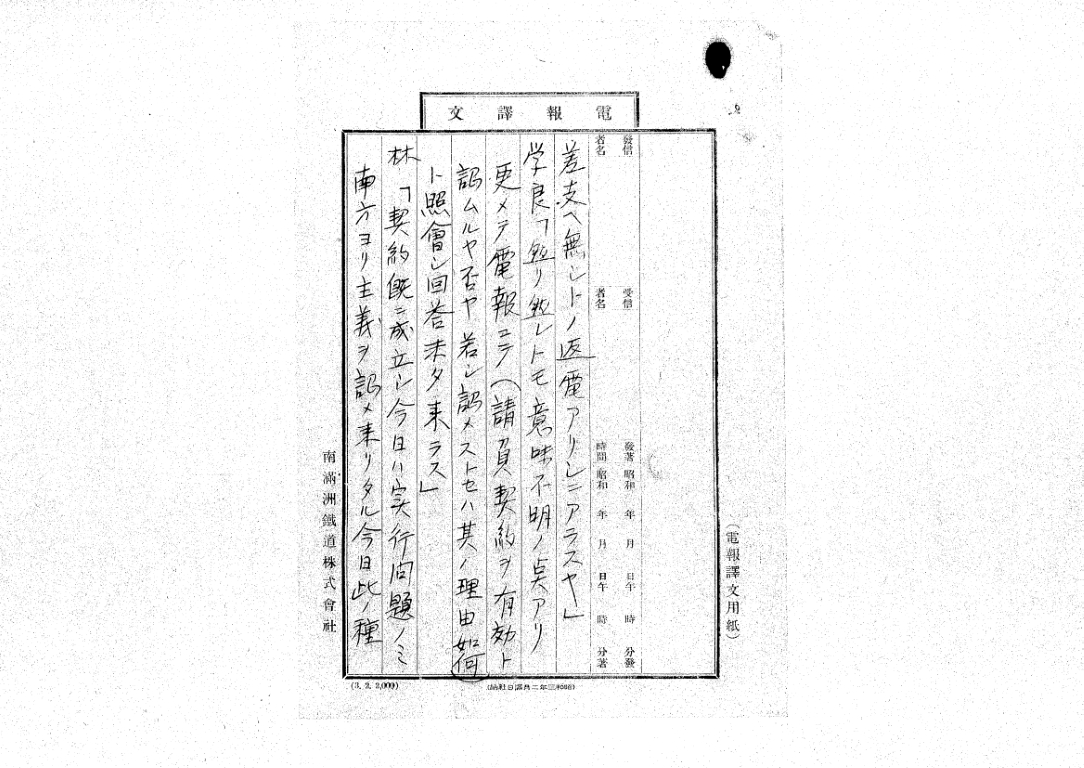 電報譯文
(電報譯文用紙)
發信者名 受信者名 發著時間 昭和 年 月 日午 時 分發 昭和 年 月 日午 時 分著
差支ヘ無シトノ返電アリシニアラスヤ」
学良「然リ然レトモ意味不明ノ点アリ
更メテ電報ニテ(請負契約ヲ有効ト
認ムルヤ否ヤ若シ認メストセハ其ノ理由如何)
ト照會シ回答未タ来ラス」
林「契約既ニ成立シ今日ハ実行問題ノミ
南方ヨリ主義ヲ認メ来リタル今日此ノ種
南滿洲鐵道株式會社
(3. 2. 2,000)